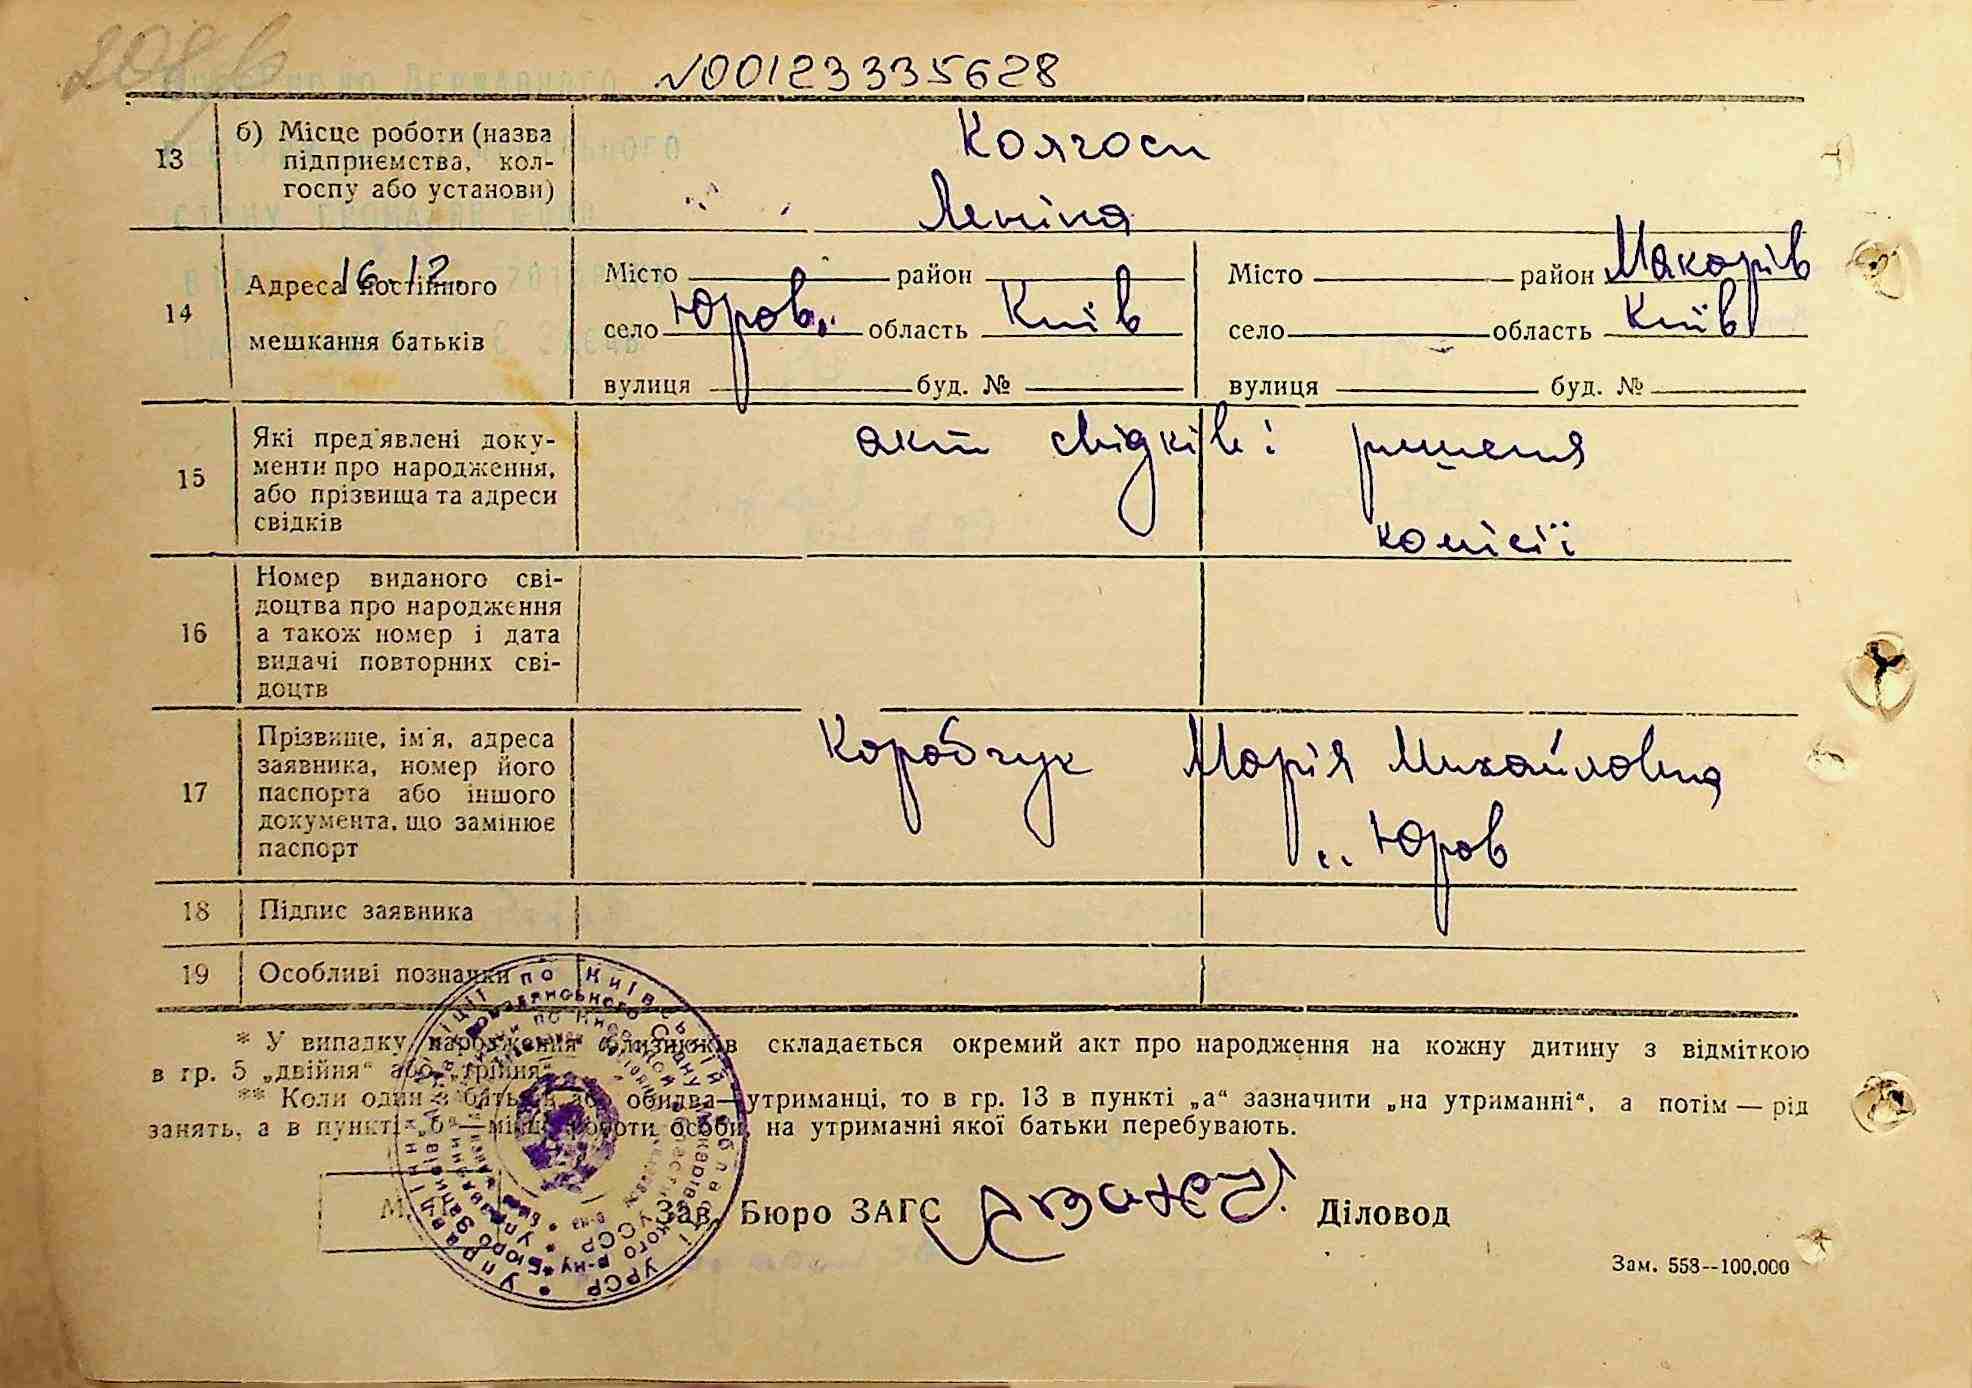 №00123335628
13 б) Місце роботи (назва
підприємства, кол-
госпу або установи)
Колгосп
Леніна
14 Адреса постійного
мешкання батьків
16.12.
Місто район
село Юров. область Київ
вулиця буд. №
Місто район Макарів
село область Київ
вулиця буд. №
15 Які пред'явлені доку-
менти про народження,
або прізвища та адреси
свідків
акт свідків: рішення
комісії
16 Номер виданого сві-
доцтва про народження
а також номер і дата
видачі повторних сві-
доцтв
17 Прізвище, ім'я, адреса
заявника, номер його
паспорта або іншого
документа, що замінює
паспорт
Коробчук Марія Михайловна
Юров
18 Підпис заявника
19 Особливі позначки
* У випадку народження близнюків складається окремий акт про народження на кожну дитину з відміткою
в гр. 5 „двійня“ або „трійня“.
** Коли один з батьків або обидва—утриманці, то в гр. 13 в пункті „а“ зазначити „на утриманні“, а потім — рід
занять, а в пункті „б“—місце роботи особи, на утриманні якої батьки перебувають.
Зав. Бюро ЗАГС Діловод
Зам. 558--100,000